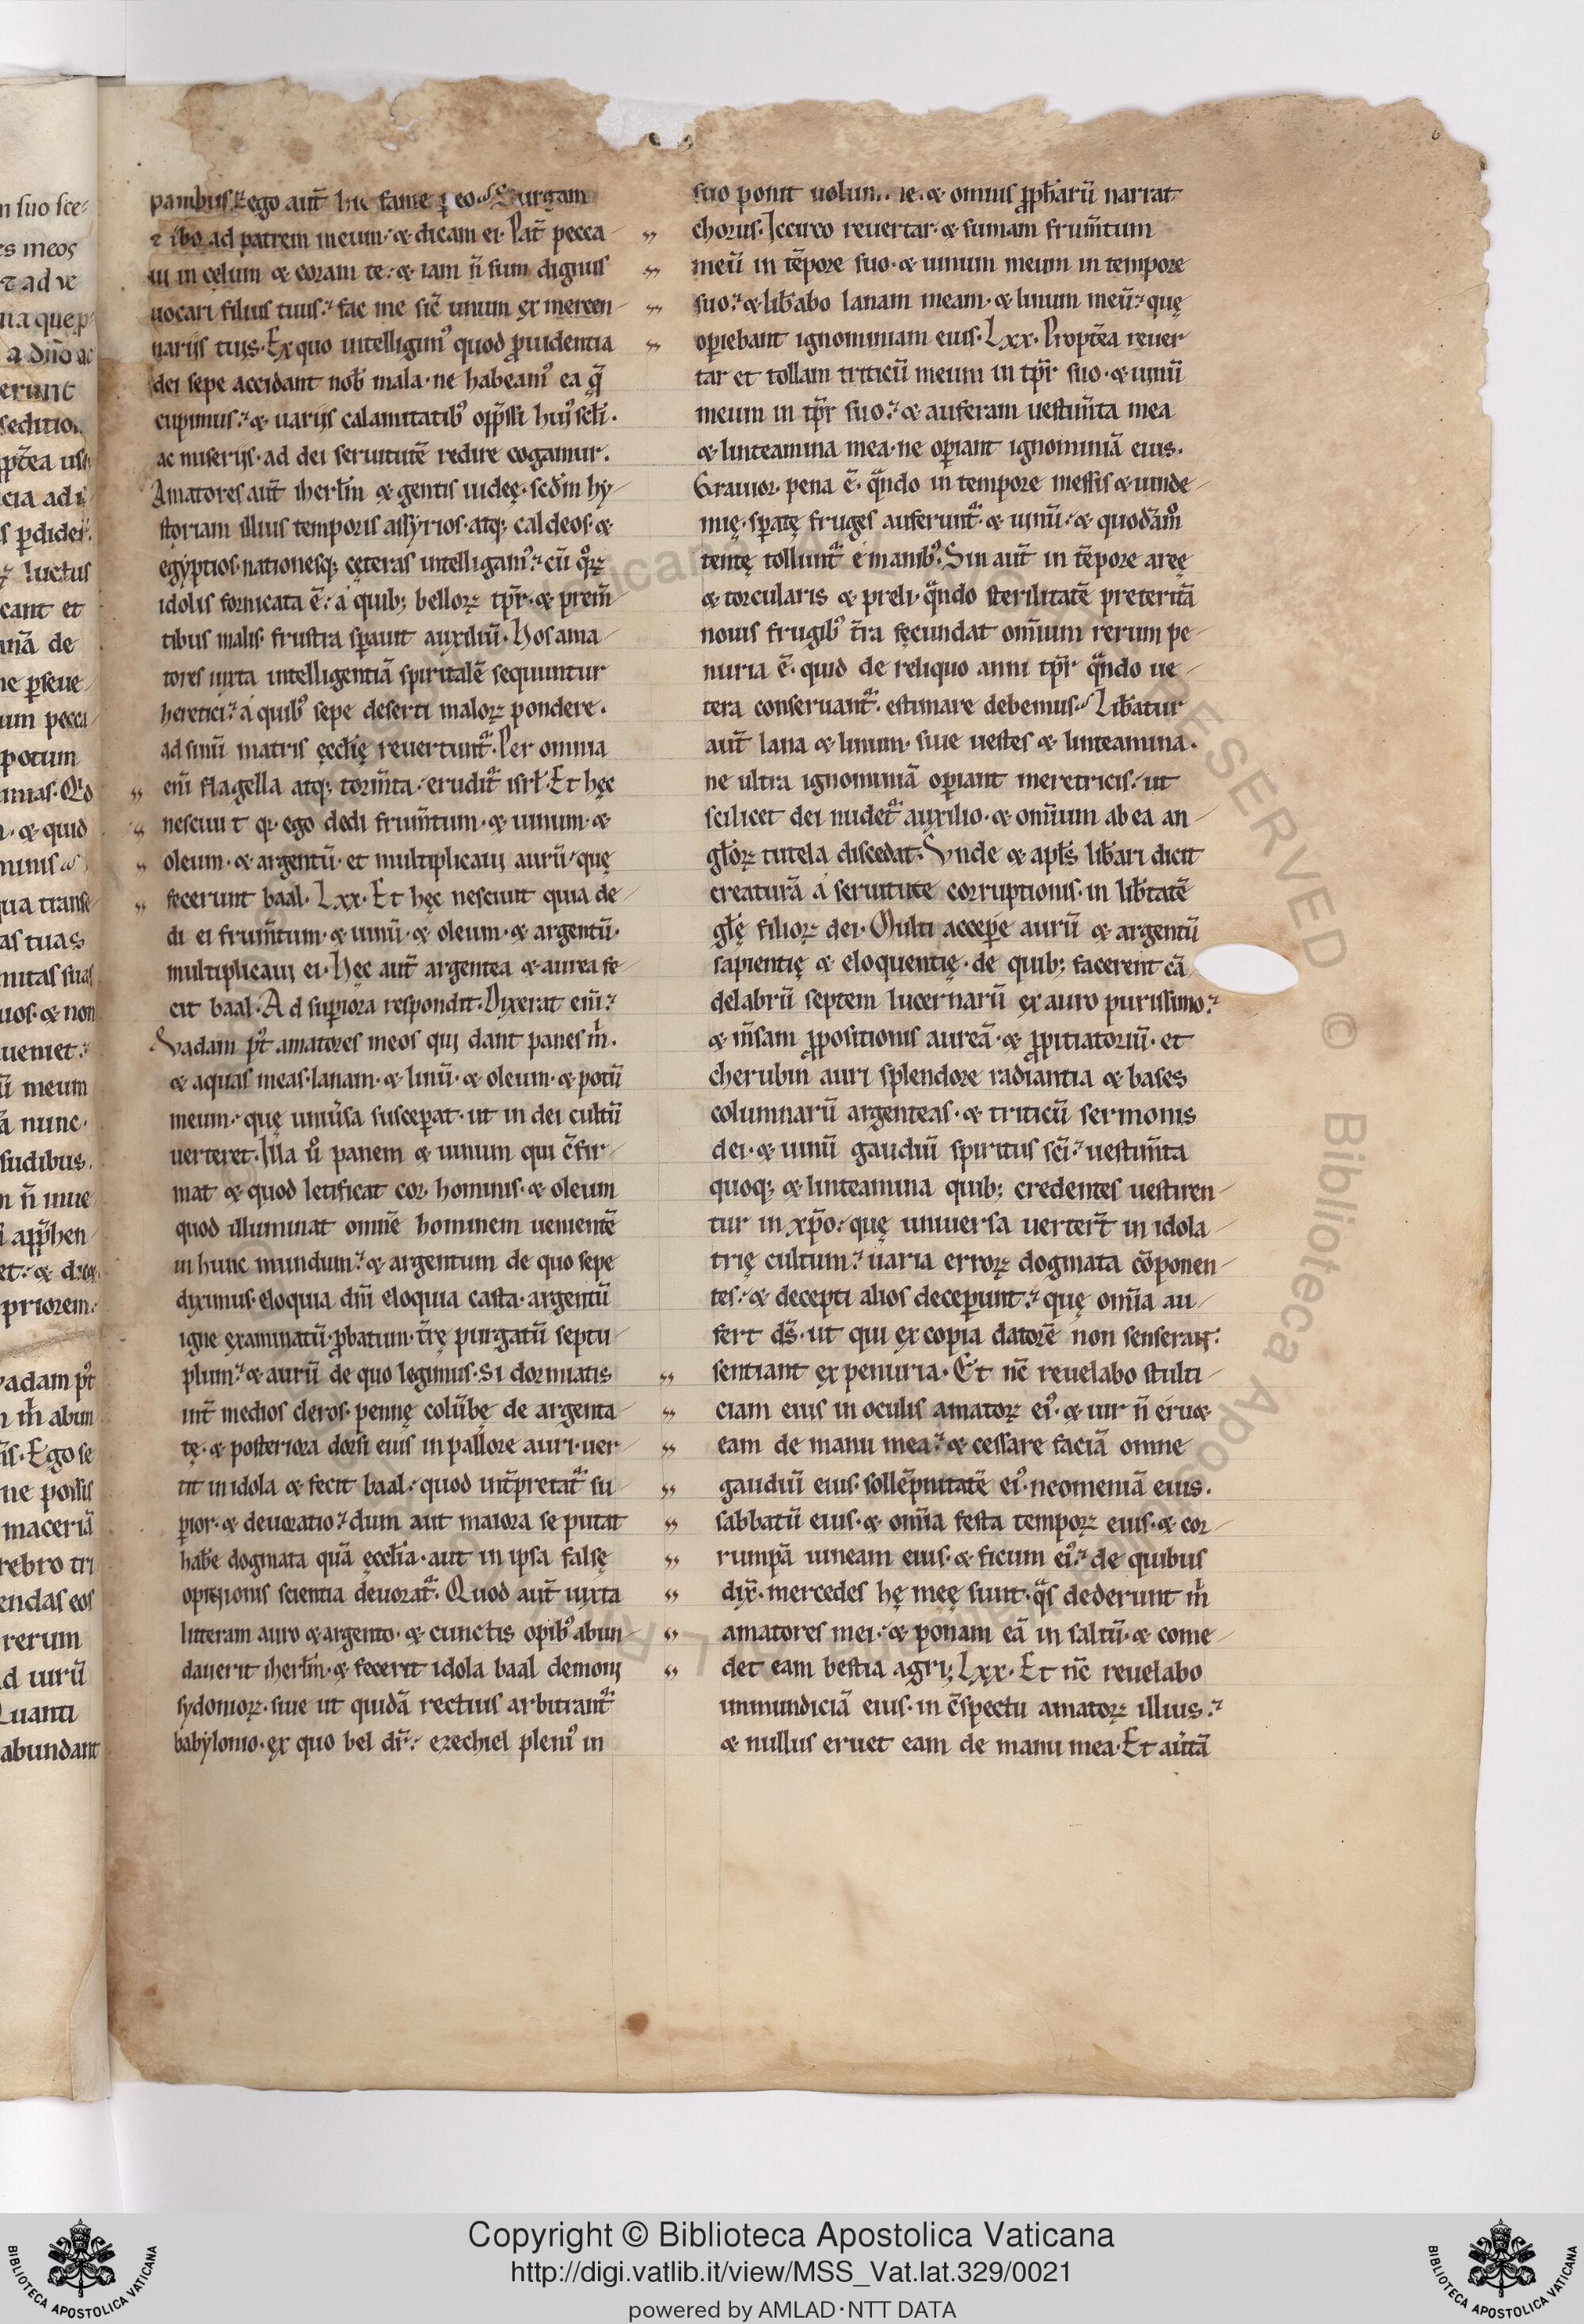 panibus. ⁊ ego aut̄ hic fame ꝑeo. Surgam
⁊ ibo ad patrem meum. & dicam ei. Pat̄ pecca
ui in cęlum & coram te. & iam n̄ sum dignus
uocari filius tuus. fac me sic̄ unum ex mercen
narijs tuis. Ex quo intelligimꝰ quod ꝓuidentia
dei sepe accidant nob̄ mala. ne habeamꝰ ea q̄
cupimus. & uarijs calamitatibꝰ opp̄ssi huiꝰ sc̄li.
ac miserijs. ad dei seruitutē redire cogamur.
Amatores aut̄ iherl̄m & gentis iudeę. sc̄dm hy
storiam illius temporis assyrios. atq; caldeos. &
egyptios. nationesq; cęteras intelligamꝰ. cū quoꝝ
idolis fornicata ē. a quib; belloꝝ tp̄r. & prem̄
tibus malis. frustra sꝑauit auxiliū. Hos ama
tores iuxta intelligentiā spiritalē sequuntur
heretici. a quibꝰ sepe deserti maloꝝ pondere.
ad sinū matris ęccl̄ię reuertunt᷑. Per omnia
eni͂ flagella atq; torm̄ta. erudit᷑ isrl̄. Et hęc
nesciuit q̇ ego dedi frum̄tum. & uinum. &
oleum. & argentū. et multiplicaui aurū. quę
fecerunt baal. Lxx. Et hęc nesciuit quia de
di ei frum̄tum. & uinū. & oleum. & argentū.
multiplicaui ei. Hęc aut̄ argentea & aurea fe
cit baal. Ad suꝑiora respondit. Dixerat eni͂.
Vadam pꝰt amatores meos qui dant panes m̄.
& aquas meas. lanam. & linū. & oleum. & potū
meum. quę uniūsa susceꝑat. ut in dei cultū
uerteret. Illa uͦ panem & uinum qui c̄fir
mat & quod letificat cor hominis. & oleum
quod illuminat omnē hominem uenientē
in hunc mundum. & argentum de quo sepe
diximus. eloquia dn̄i eloquia casta. argentū
igne examinatū. ꝓbatum. t̄rę purgatū septu
plum. & aurū de quo legimus. Si dormiatis
int̄ medios cleros. pennę colūbę de argenta
tę. & posteriora dorsi eius in pallore auri. uer
tit in idola & fecit baal. quod int̄pretat᷑ su
ꝑior. & deuoratio. dum aut maiora se putat
hab̄e dogmata quā ęccl̄ia. aut in ipsa falsę
opinionis scientia deuorat᷑. Quod aut̄ iuxta
litteram auro & argento. & cunctis opibꝰ abun
dauerit iherl̄m. & fecerit idola baal demoni
sydonioꝝ. siue ut quidā rectius arbitrant᷑
babylonio. ex quo bel dr̄. ezechiel plenꝰ in
suo ponit & omnis ꝓph̄arū narrat
chorus. Iccirco reuertar. & sumam frum̄tum
meū in tēpore suo. & uinum meum in tempore
suo. & lib̄abo lanam meam. & linum meū. quę
oꝑiebant ignominiam eius. Lxx. Propt̄ea reuer
tar et tollam triticū meum in tp̄r suo. & uinū
meum in tp̄r suo. & auferam uestim̄ta mea
& linteamina mea. ne oꝑiant ignominiā eius.
Grauior pena ē. quando in tempore messis & uinde
mię. sꝑatę fruges auferunt᷑. & uinū. & quodāmꝰ
tentę tollunt᷑ e manibꝰ. Sin aut̄ in tēpore areę
& torcularis & preli. quando sterilitatē preteritā
nouis frugibꝰ t̄ra fęcundat omīum rerum pe
nuria ē. quid de reliquo anni tp̄r quando ue
tera conseruant᷑. estimare debemus. Lib̄atur
aut̄ lana & linum. siue uestes & linteamina.
ne ultra ignominiā oꝑiant meretricis. ut
scilicet dei nudet᷑ auxilio. & omīum ab ea an
gl̄oꝝ tutela discedat. Vnde & apl̄s lib̄ari dicit
creaturā a seruitute corruptionis. in lib̄tatē
gl̄ę filioꝝ dei. Multi acceꝑe aurū & argentū
sapientię & eloquentię. de quib; facerent cā
delabrū septem lucernarū ex auro purissimo.
& m̄sam ꝓpositionis aureā. & ꝓpitiatoriū. et
cherubin auri splendore radiantia & bases
columnarū argenteas. & triticū sermonis
dei. & uinū gaudiū spiritus sc̄i. uestim̄ta
quoq; & linteamina quib; credentes uestiren
tur in xp̄o. quę uniuersa uertert̄ in idola
trię cultum. uaria erroꝝ dogmata cōponen
tes. & decepti alios deceꝑunt. quę om̄ia au
fert ds̄. ut qui ex copia datorē non senserant.
sentiant ex penuria. Et nc̄ reuelabo stulti
ciam eius in oculis amatoꝝ eiꝰ. & uir n̄ eru&
eam de manu mea. & cessare faciā omne
gaudiū eius. sollēpnitatē eiꝰ. neomeniā eius.
sabbatū eius. & om̄ia festa tempoꝝ eius. & cor
rumpā uineam eius. & ficum eiꝰ. de quibus
dix̄. mercedes hę meę sunt. quas dederunt m̄
amatores mei. & ponam eā in saltū. & come
det eam bestia agri; Lxx. Et nc̄ reuelabo
inmundiciā eius. in c̄spectu amatoꝝ illius.
& nullus eruet eam de manu mea. Et aūtā
Copyright © Biblioteca Apostolica Vaticana
http://digi.vatlib.it/view/MSS_Vat.lat.329/0021
powered by AMLAD·NTT DATA
BIBLIOTECA APOSTOLICA VATICANA
BIBLIOTECA APOSTOLICA VATICANA